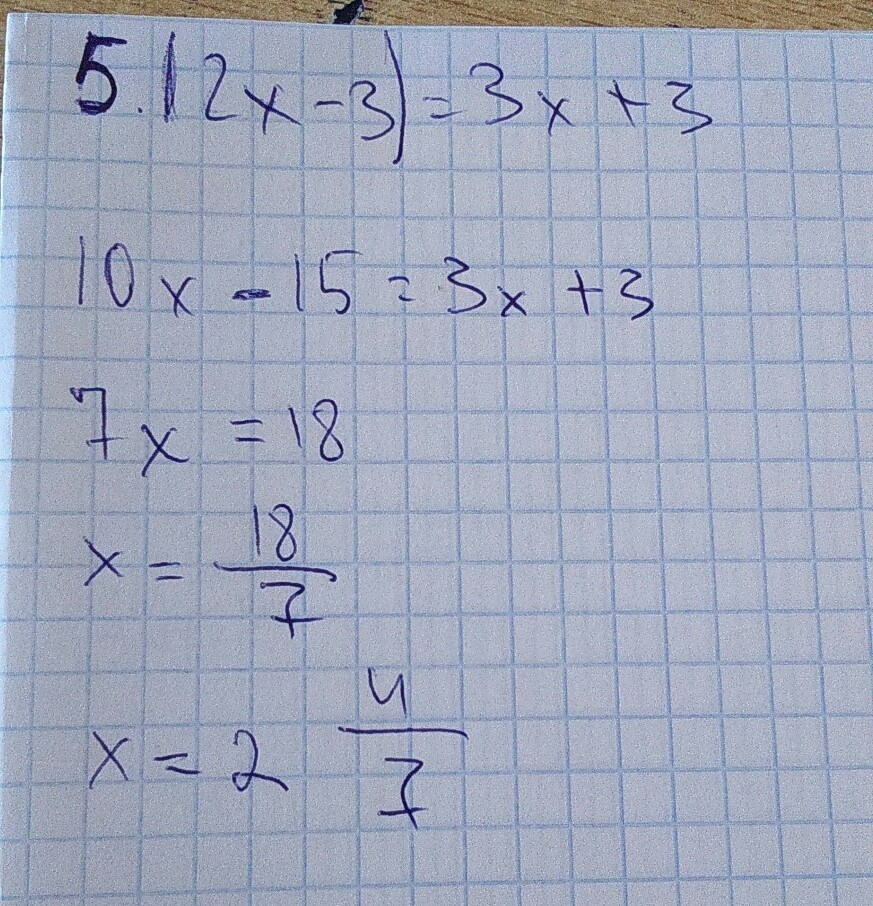 5.(2x-3)=3x+3
10x-15=3x+3
7x=18
x=18/7
x=2 4/7